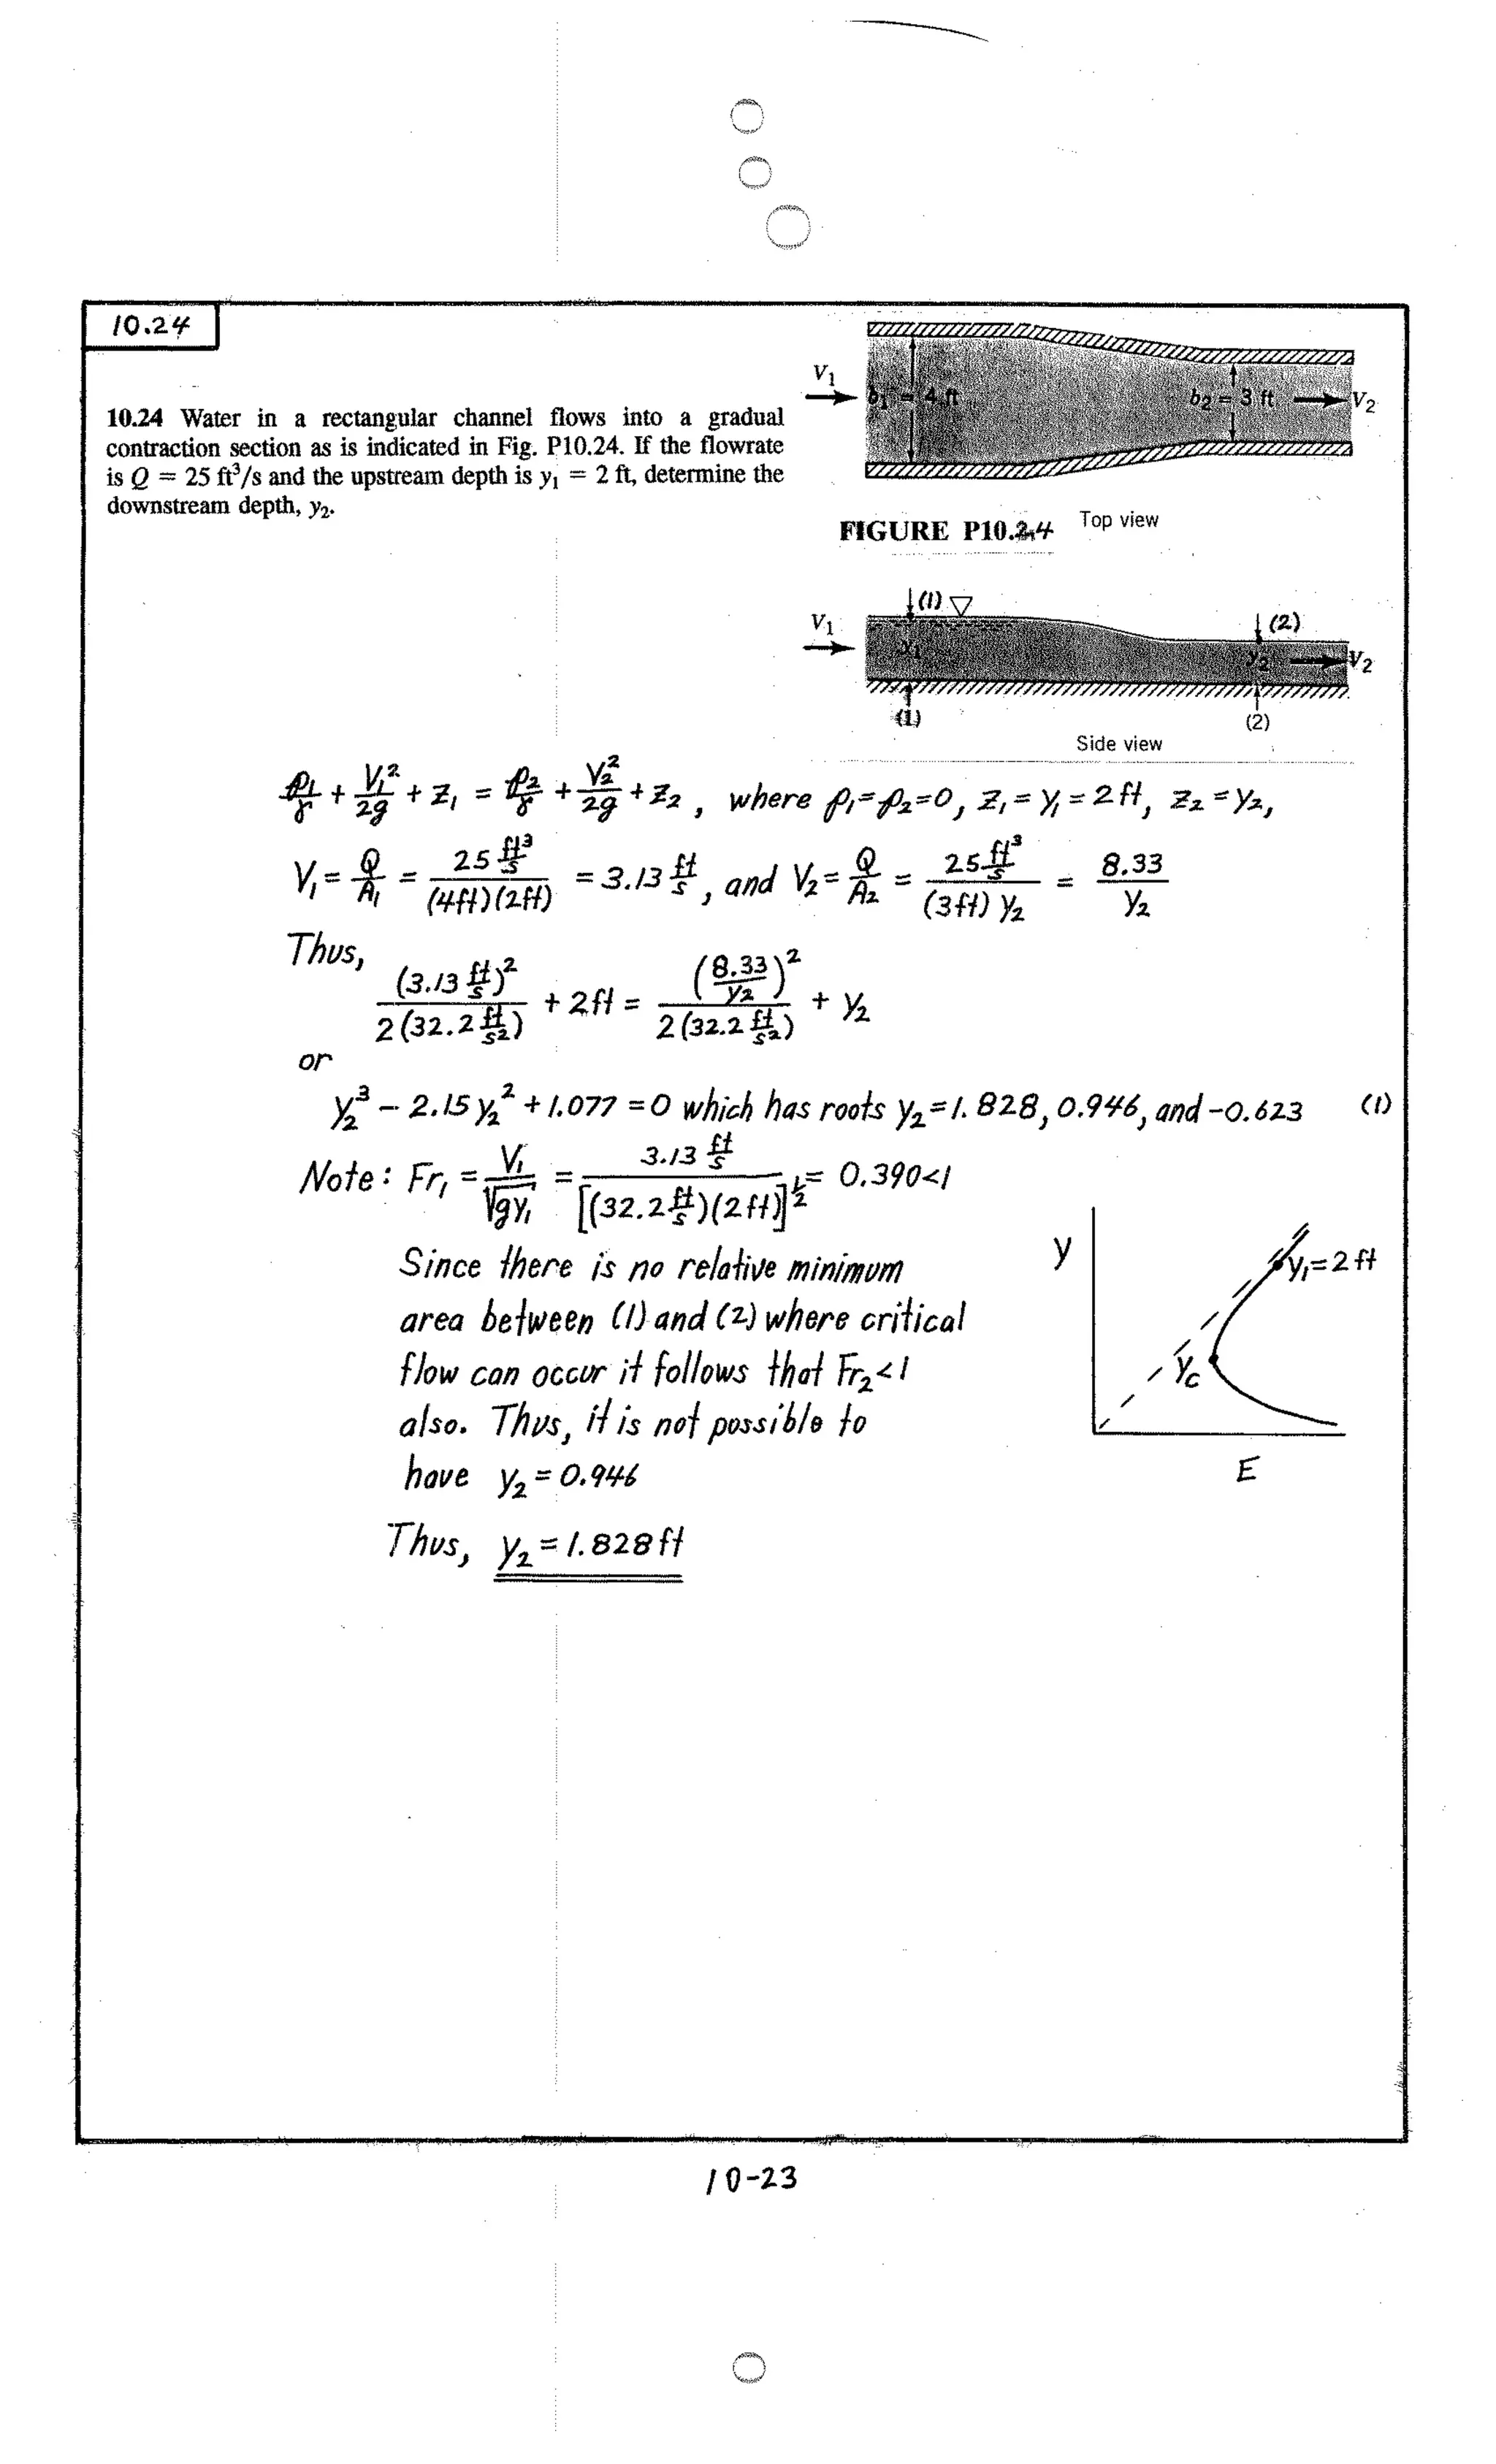 10.24
10.24 Water in a rectangular channel flows into a gradual
contraction section as is indicated in Fig. P10.24. If the flowrate
is Q = 25 ft³/s and the upstream depth is y₁ = 2 ft, determine the
downstream depth, y₂.
V₁
b₁ = 4 ft
b₂ = 3 ft
V₂
FIGURE P10.24
Top view
(1)
V₁
y₁
(2)
y₂
V₂
(1)
(2)
Side view
p₁/γ + V₁²/2g + z₁ = p₂/γ + V₂²/2g + z₂ , where p₁=p₂=0, z₁=y₁=2ft, z₂=y₂,
V₁ = Q/A₁ = 25 ft³/s / (4ft)(2ft) = 3.13 ft/s , and V₂ = Q/A₂ = 25 ft³/s / (3ft) y₂ = 8.33/y₂
Thus,
(3.13 ft/s)² / 2(32.2 ft/s²) + 2ft = (8.33/y₂)² / 2(32.2 ft/s²) + y₂
or
y₂³ - 2.15 y₂² + 1.077 = 0 which has roots y₂ = 1.828, 0.946, and -0.623 (1)
Note: Fr₁ = V₁/√gy₁ = 3.13 ft/s / [(32.2 ft/s)(2ft)]^½ = 0.390<1
Since there is no relative minimum
area between (1) and (2) where critical
flow can occur it follows that Fr₂<1
also. Thus, it is not possible to
have y₂ = 0.946
Thus, y₂ = 1.828 ft
y
y₁=2 ft
yc
E
10-23